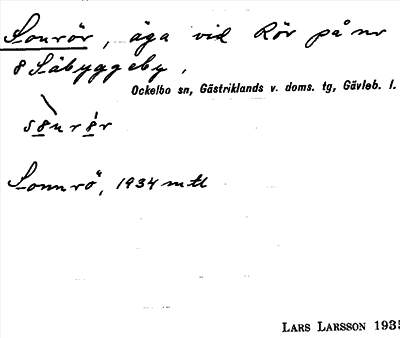 Sonrör, äga vid Rör på nr
8 Säbyggeby,
Ockelbo sn, Gästriklands v. doms. tg, Gävleb. l.
s8̲nr8̲r
Sonnrö, 1934 mtl
LARS LARSSON 1935